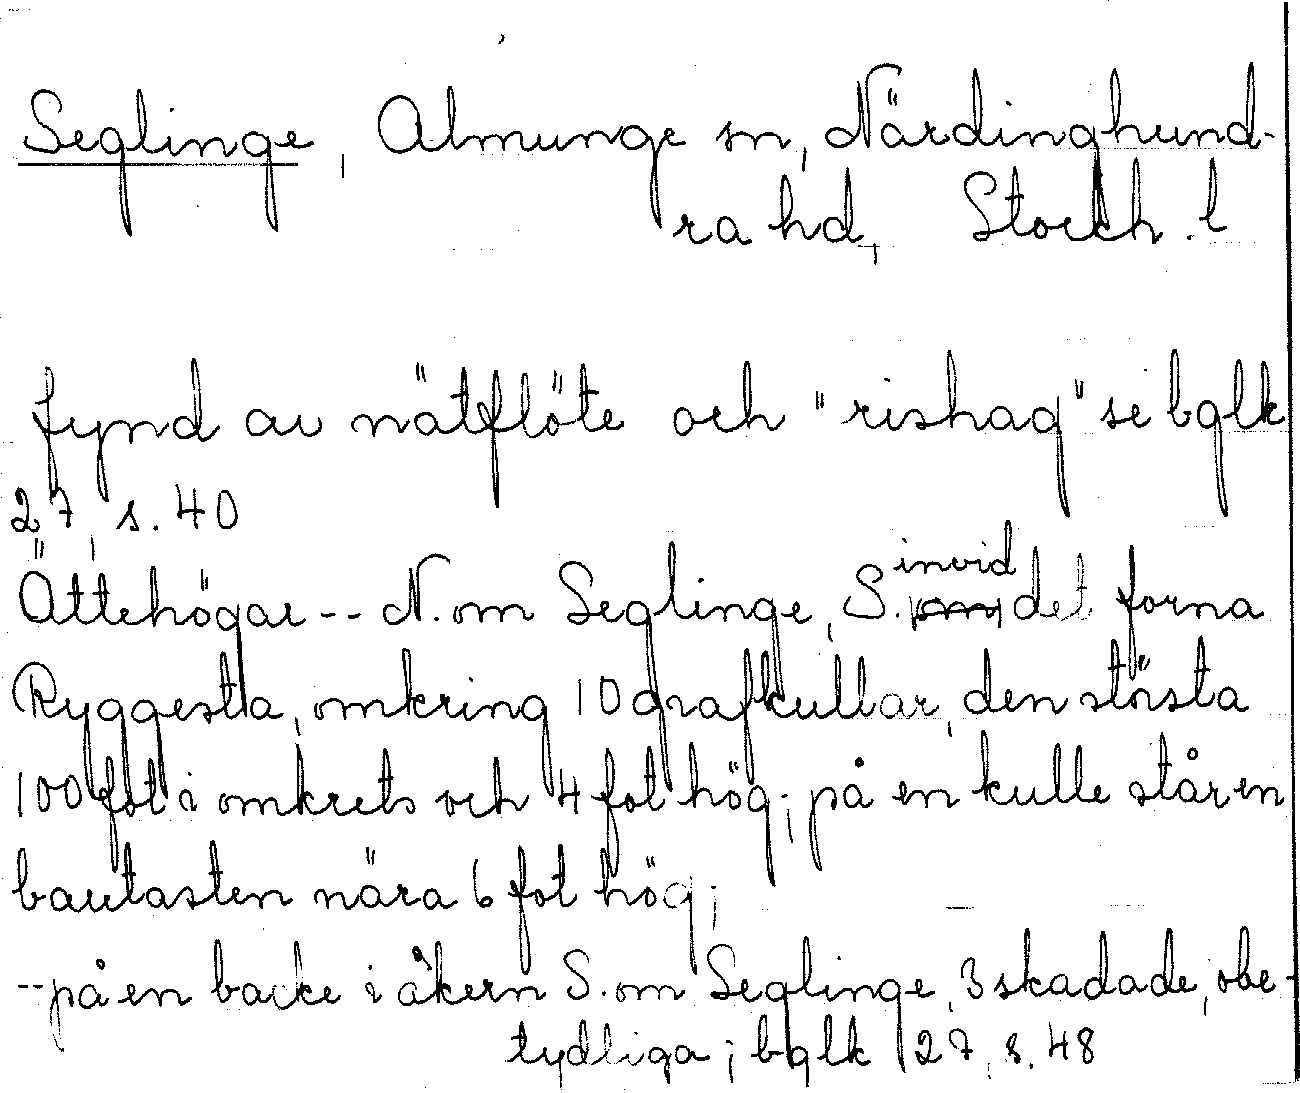 Seglinge, Almunge sn, Närdinghund-
ra hd, Stockh. l
fynd av nätflöte och "rishag" se bglk
27, s. 40
Ättehögar -- N. om Seglinge, S. invid det forna
Ryggesta, omkring 10 grafkullar, den största
100 fot i omkrets och 4 fot hög; på en kulle står en
bautasten nära 6 fot hög;
-- på en backe i åkern S. om Seglinge, 3 skadade, obe-
tydliga; bglk 27, s. 48